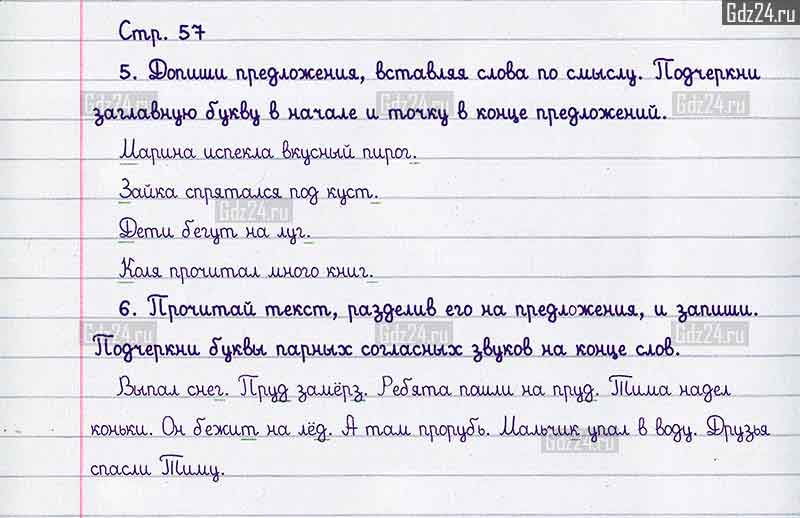 Gdz24.ru
Стр. 57
5. Допиши предложения, вставляя слова по смыслу. Подчеркни
Gdz24.ru Gdz24.ru Gdz24.ru
заглавную букву в начале и точку в конце предложений.
Марина испекла вкусный пирог.
Зайка спрятался под куст.
Gdz24.ru
Дети бегут на луг.
Коля прочитал много книг.
6. Прочитай текст, разделив его на предложения, и запиши.
Gdz24.ru Gdz24.ru Gdz24.ru
Подчеркни буквы парных согласных звуков на конце слов.
Выпал снег. Пруд замёрз. Ребята пошли на пруд. Тима надел
коньки. Он бежит на лёд. А там прорубь. Мальчик упал в воду. Друзья
Gdz24.ru
спасли Тиму.